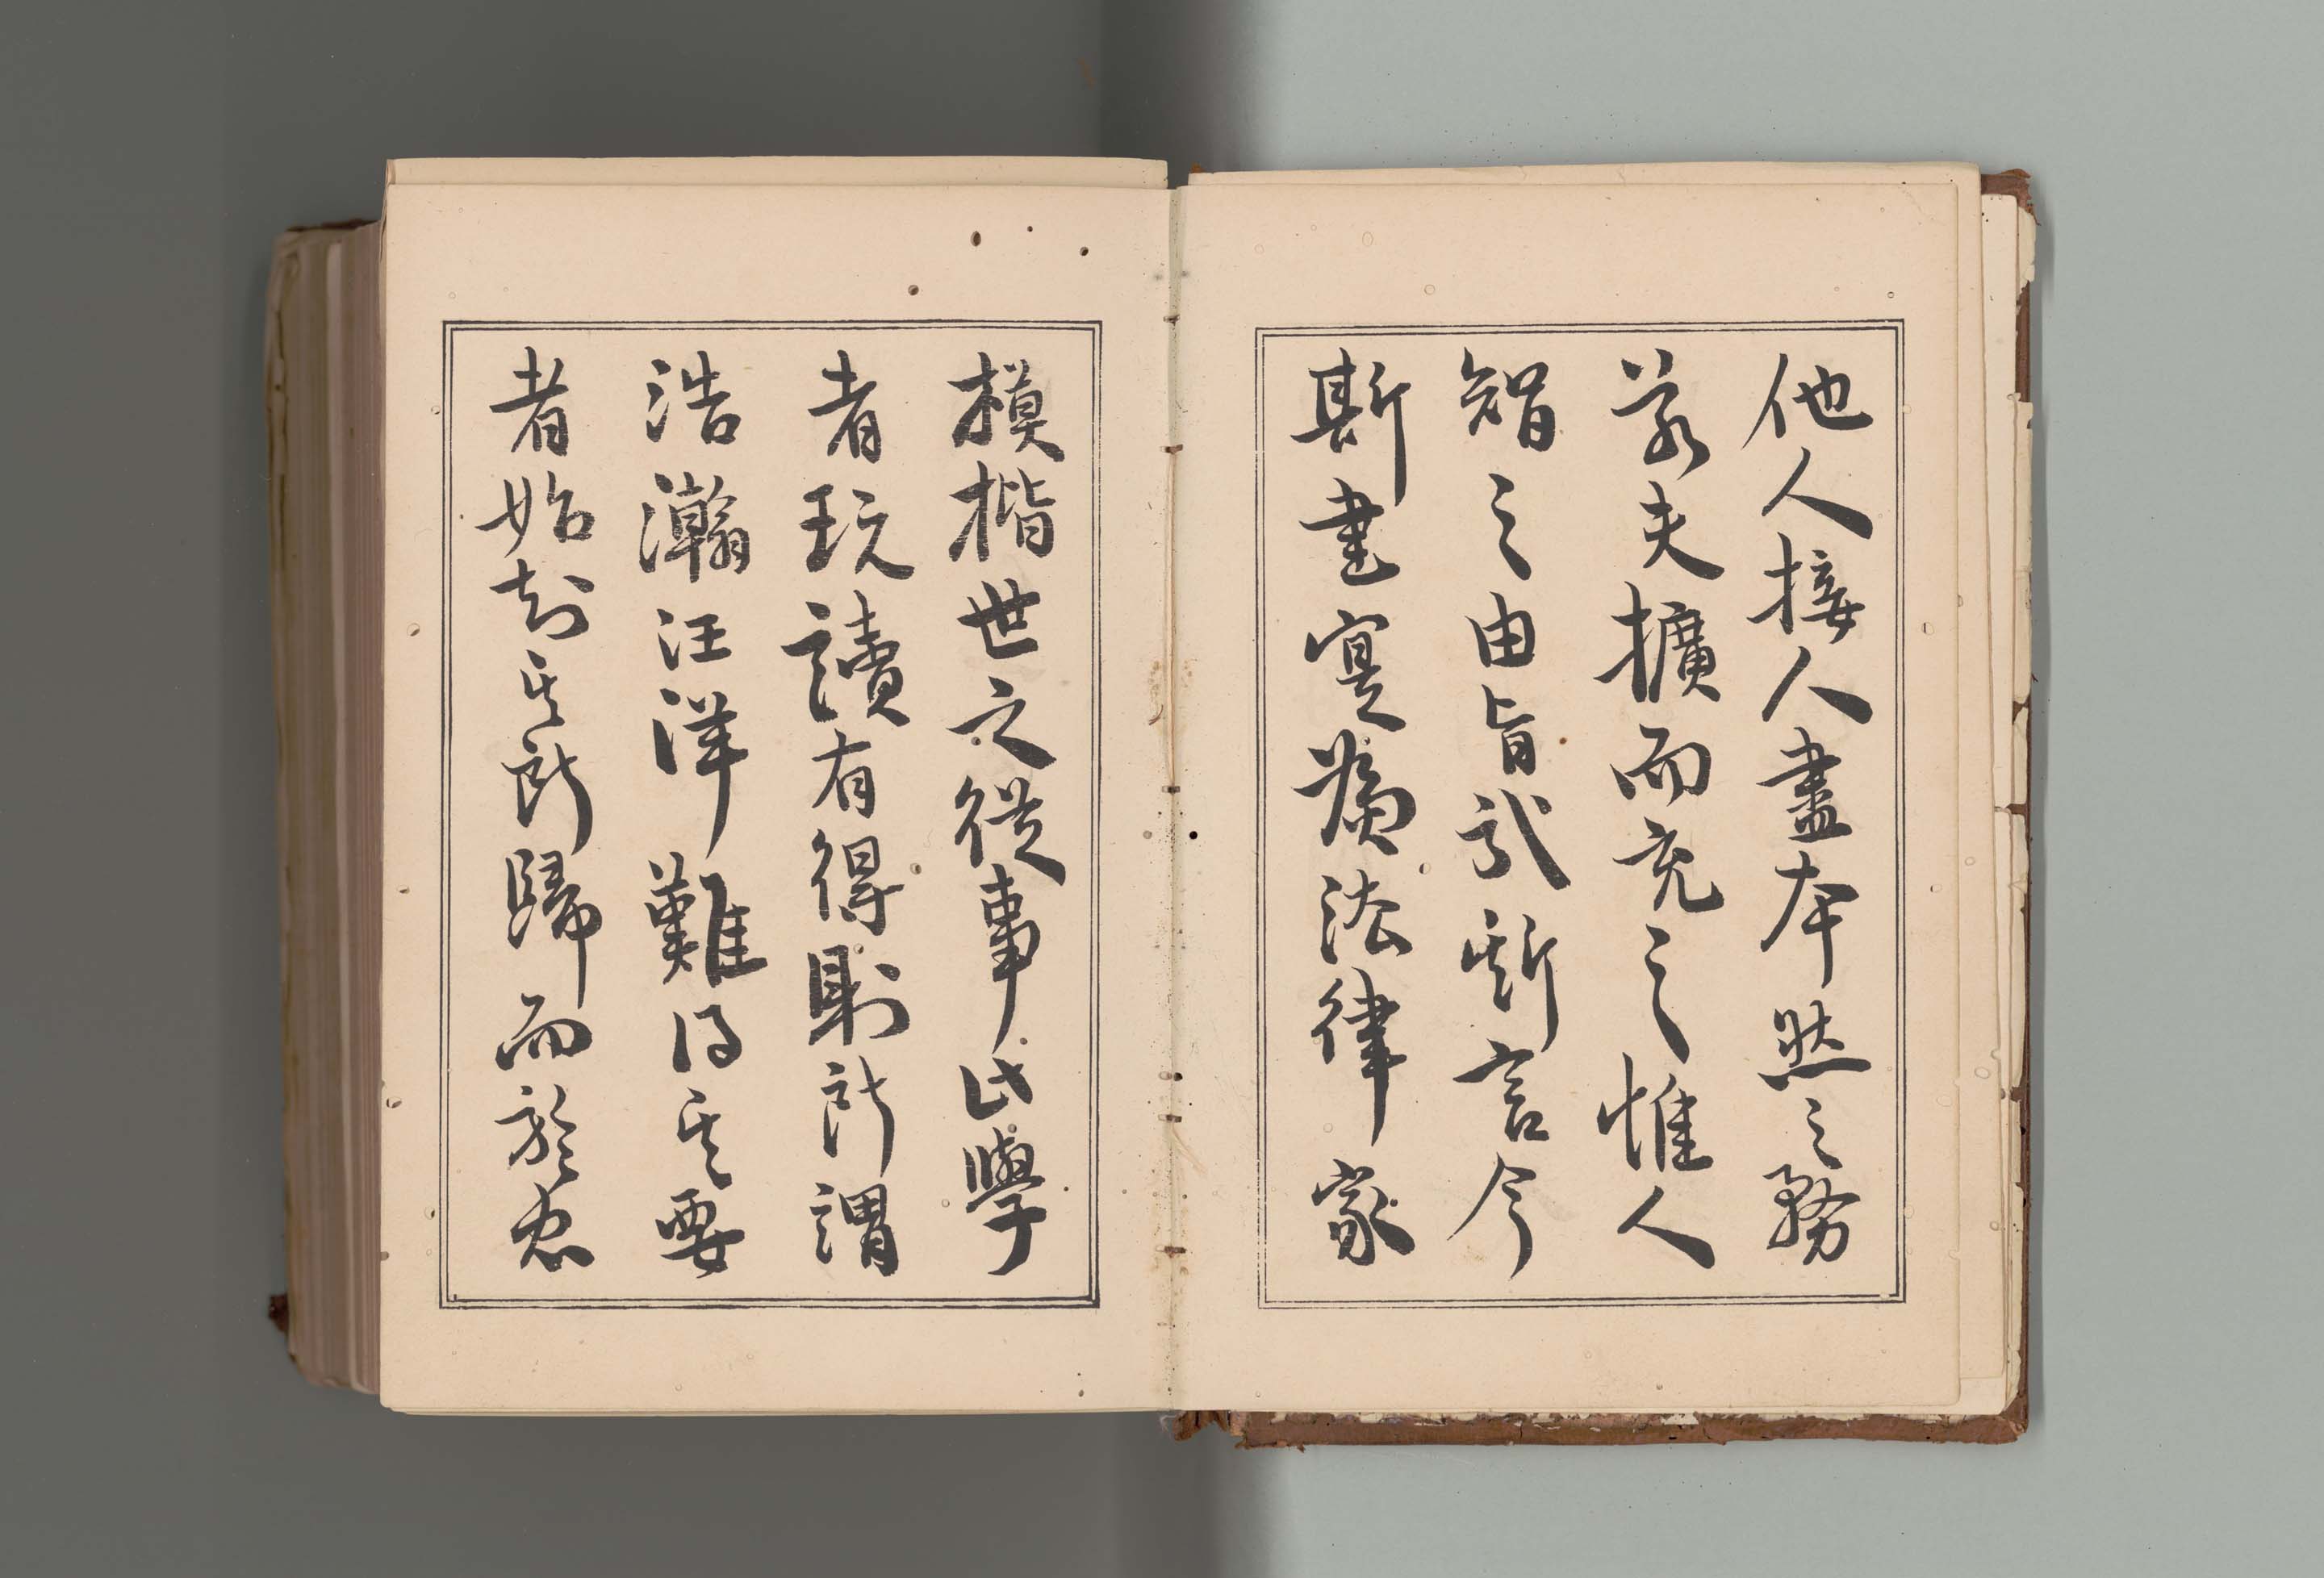 他人接人盡本然之務
若夫擴而充之惟人
智之由旨哉斯言今
斯書寔爲法律家
模楷世之從事此學
者玩讀有得則所謂
浩瀚汪洋難得其要
者始知其所歸而於